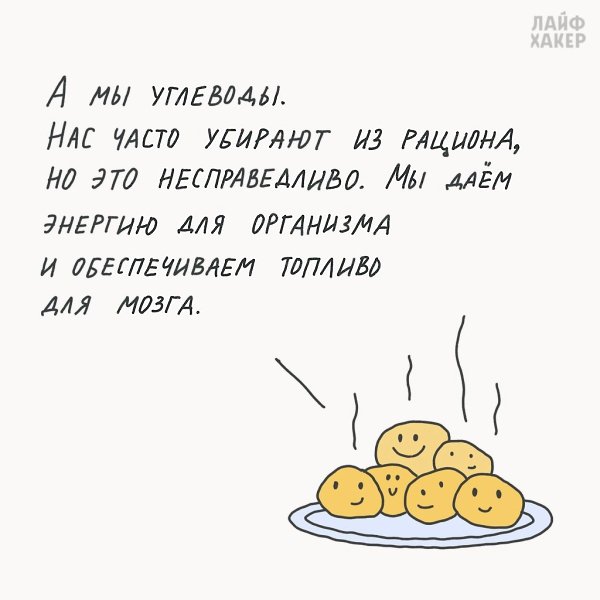 ЛАЙФ
ХАКЕР
А МЫ УГЛЕВОДЫ.
НАС ЧАСТО УБИРАЮТ ИЗ РАЦИОНА,
НО ЭТО НЕСПРАВЕДЛИВО. МЫ ДАЁМ
ЭНЕРГИЮ ДЛЯ ОРГАНИЗМА
И ОБЕСПЕЧИВАЕМ ТОПЛИВО
ДЛЯ МОЗГА.